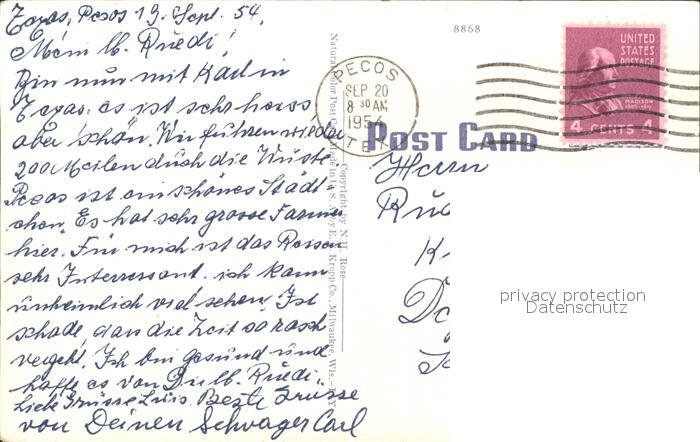 Texas, Pecos 19. Sept. 54.
Mein lb. Ruedi!
Bin nun mit Karl in
Texas. es ist sehr heiss
aber schön. Wir führen wieder
200 Meilen duch die Wüste
Pecos ist ein schönes Städt
chen. Es hat sehr grosse Farmen
hier. Für mich ist das Reisen
sehr Interressant. ich kann
unheimlich viel sehen. Ist
schade, dass die Zeit so rasch
vergeht. Ich bin gesund und
hoffe es von Du lb. Ruedi.
Liebe Grüsse Luis. Beste Grüsse
von Deinem Schwager Carl
Natural Color Post Card Made in U. S. A. by E. C. Kropp Co., Milwaukee, Wis.
Copyright by N. H. Rose
8868
PECOS
SEP 20
8 30 AM
1954
TEX.
UNITED
STATES
POSTAGE
MADISON
4 CENTS 4
POST CARD
Herrn
privacy protection
Datenschutz